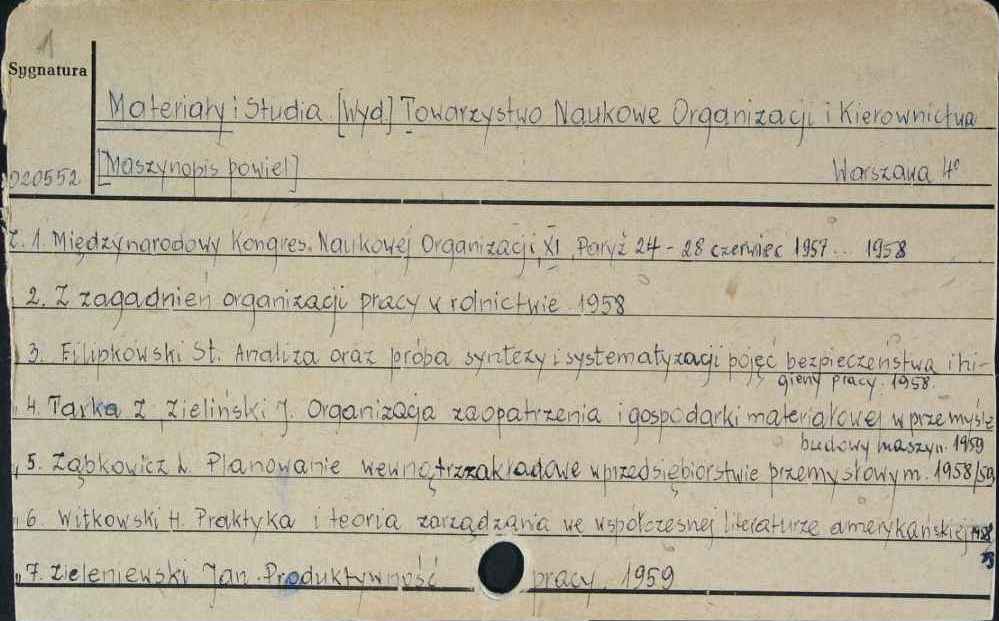 1
Sygnatura
Materiały i Studia. [Wyd.] Towarzystwo Naukowe Organizacji i Kierownictwa
020552 [Maszynopis powiel] Warszawa 4°
Z. 1. Międzynarodowy Kongres. Naukowej Organizacji, XI, Paryż 24 - 28 czerwiec 1957... 1958
„ 2. Z zagadnień organizacji pracy w rolnictwie. 1958
„ 3. Filipkowski St. Analiza oraz próba syntezy i systematyzacji pojęć bezpieczeństwa i hi-
gieny pracy. 1958.
„ 4. Tarka Z. Zieliński J. Organizacja zaopatrzenia i gospodarki materiałowej w przemyśle
budowy maszyn. 1959
„ 5. Ząbkowicz L. Planowanie wewnątrzzakładowe w przedsiębiorstwie przemysłowym. 1958/59
„ 6. Witkowski H. Praktyka i teoria zarządzania we współczesnej literaturze amerykańskiej 1958
„ 7. Zieleniewski Jan. Produktywność pracy. 1959